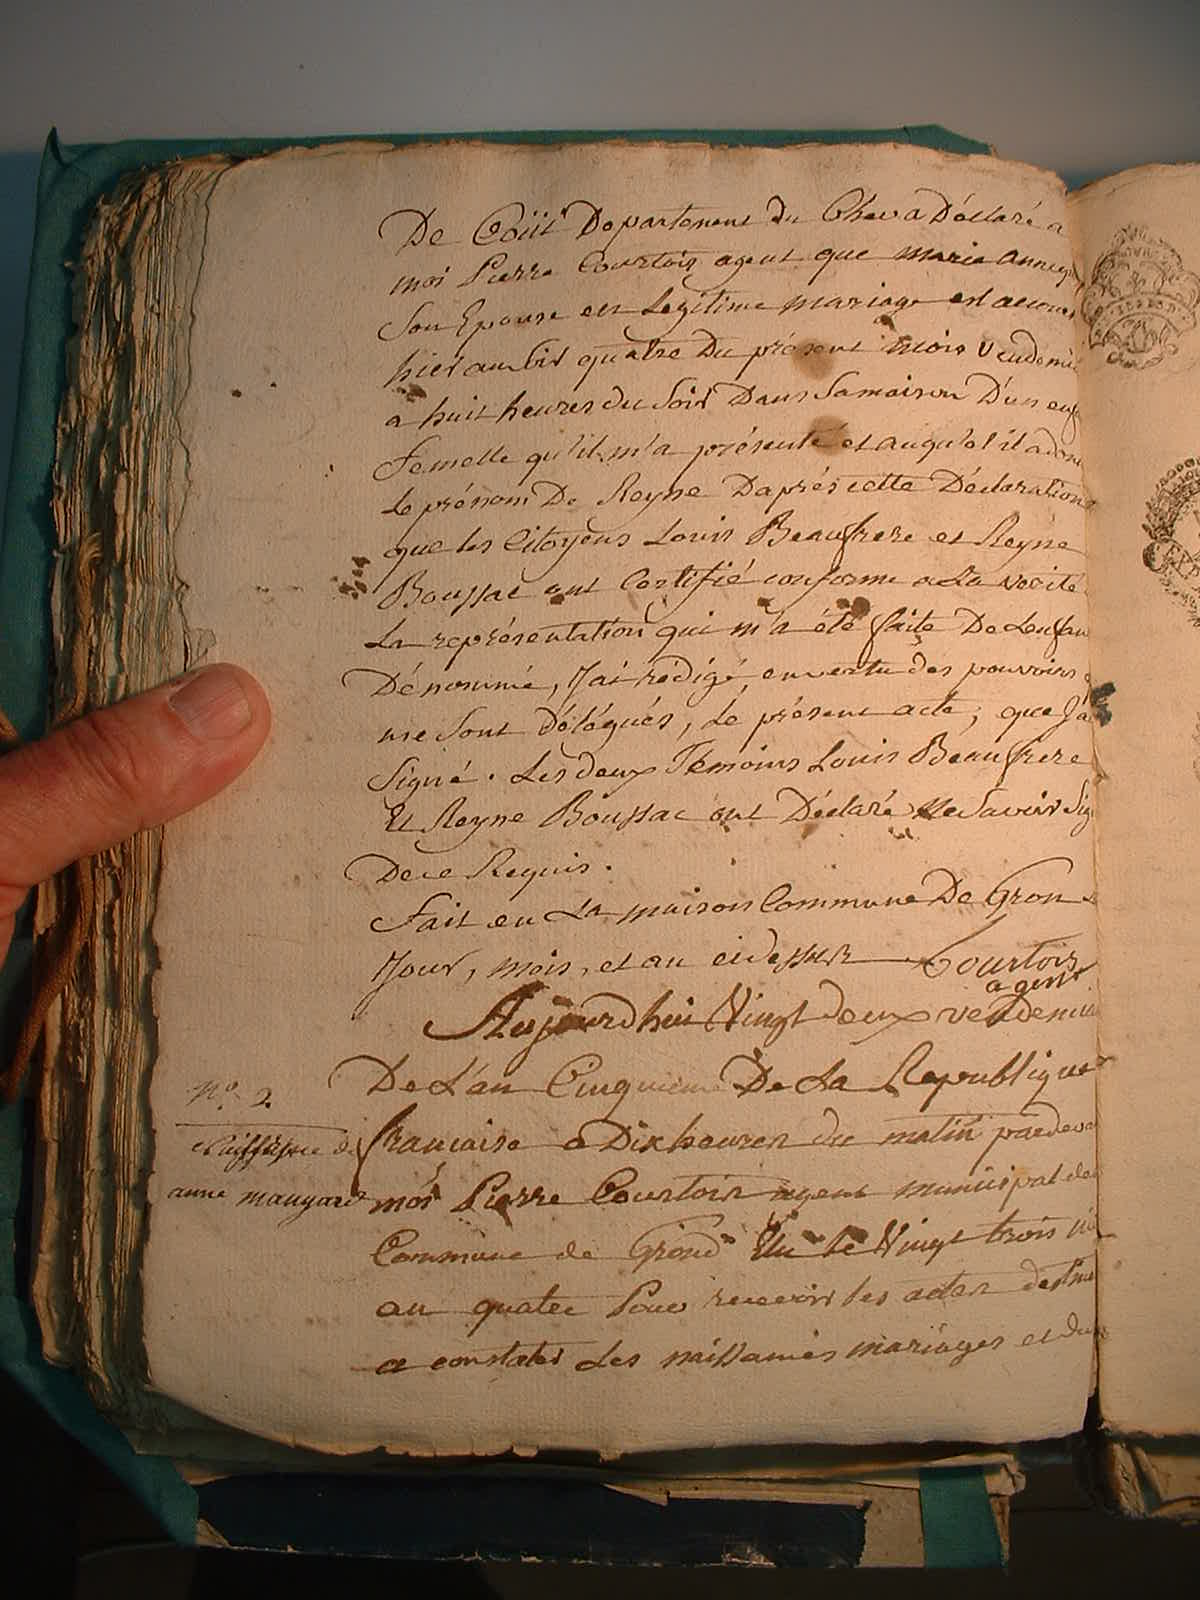 De Coüit Departement du Cher a Déclaré a
moi Pierre Courtois agent que marie anne
Son Epouse en Legitime mariage est accou
hier au Soir quatre Du présent mois Vendemi
a huit heures du Soir Dans Samaison D'un enf
Femelle qu'il m'a présenté et auquel il a don
Le prénom De Reyne D'après cette Déclaration
que les Citoyens Louis Beaufrere et Reyne
Boussac ont Certifié conforme a La verité
La représentation qui m'a été faite De Lenfan
Dénommé, J'ai rédigé, en vertu des pouvoirs
me Sont Délégués, Le présent acte, que J'a
Signé. Les deux Témoins Louis Beaufrere
Et Reyne Boussac ont Déclaré ne Savoir Sig
De ce Requis.
Fait en La maison Commune De Gron
Jour, mois, et an ci dessus Courtois
agent
Aujourdhui Vingt deux vendemia
De L'an Cinquieme De La Republique
N.o 2.
francaise a Dix heures du matin pardeva
Naissance de
moi Pierre Courtois agent municipal de
anne maugard
Commune de Grond Elu le Vingt trois
au quatre Pour recevoir les actes destine
a constater Les naissances mariages et du